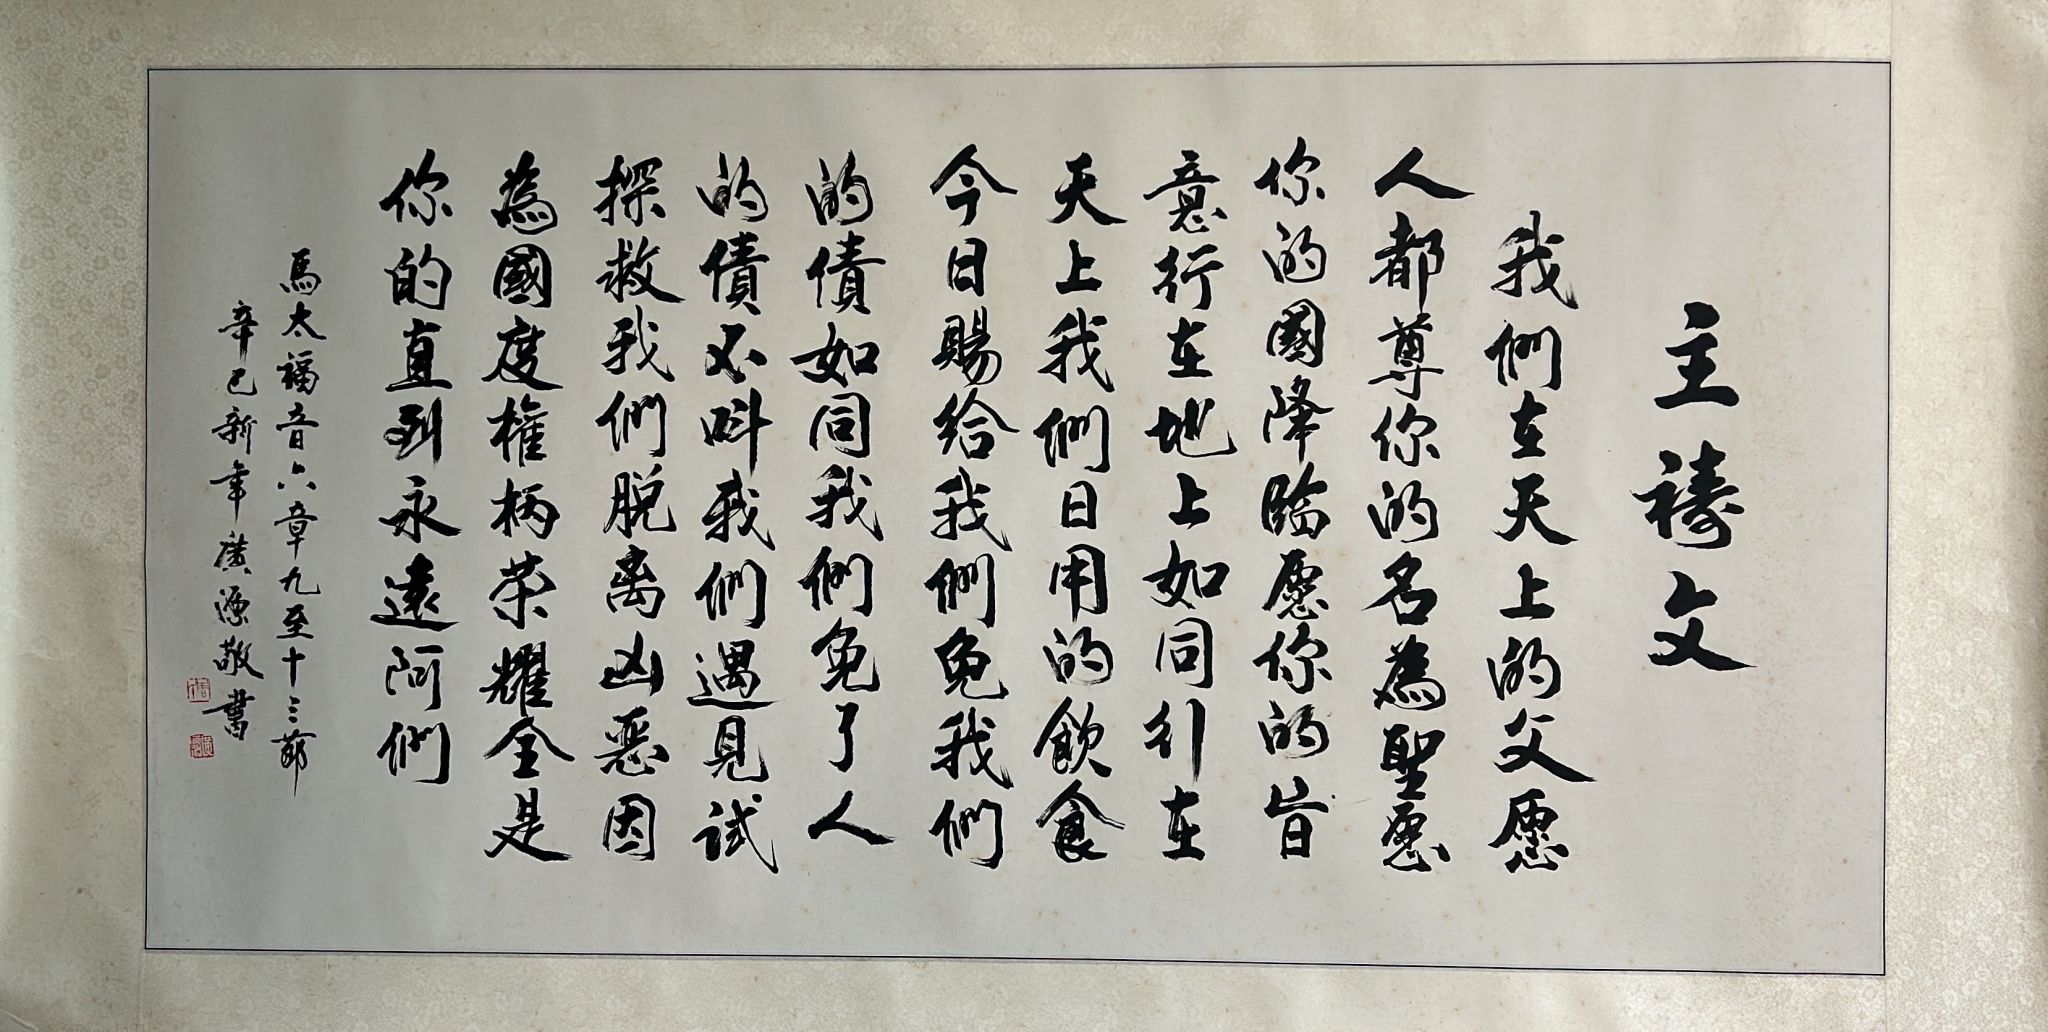 主禱文
我們在天上的父愿
人都尊你的名為聖愿
你的國降臨愿你的旨
意行在地上如同行在
天上我們日用的飲食
今日賜給我們免我們
的債如同我們免了人
的債不叫我們遇見試
探救我們脫离凶惡因
為國度權柄荣耀全是
你的直到永遠阿们
馬太福音六章九至十三節
辛巳新年廣源敬書